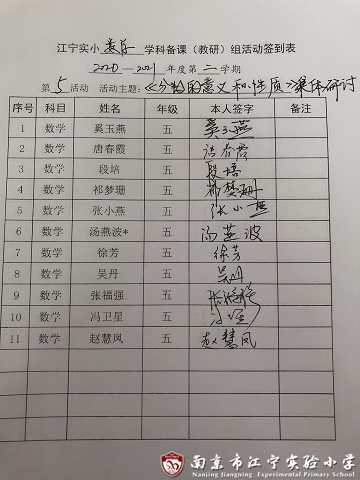 江宁实小 数学 学科备课（教研）组活动签到表
2020—2021 年度第二学期
第 5 活动 活动主题：《分数的意义和性质》集体研讨
序号 科目 姓名 年级 本人签字 备注
1 数学 奚玉燕 五 奚玉燕
2 数学 唐春霞 五 唐春霞
3 数学 段培 五 段培
4 数学 祁梦珊 五 祁梦珊
5 数学 张小燕 五 张小燕
6 数学 汤燕波* 五 汤燕波
7 数学 徐芳 五 徐芳
8 数学 吴丹 五 吴丹
9 数学 张福强 五 张福强
10 数学 冯卫星 五
11 数学 赵慧凤 五 赵慧凤
南京市江宁实验小学
Nanjing Jiangning Experimental Primary School